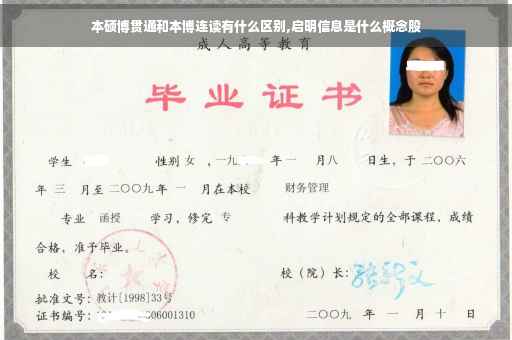 本硕博贯通和本博连读有什么区别,启明信息是什么概念股
成人高等教育
毕业证书
学生 性别 女 ，一九 年 一 月 八 日生，于 二〇〇六
年 三 月至 二〇〇九 年 一 月在本校 财务管理
专业 函授 学习，修完 专 科教学计划规定的全部课程，成绩
合格，准予毕业。
校 名： 校（院）长：
批准文号：教计[1998]33号
证书编号： 06001310 二〇〇九 年 一 月 十 日